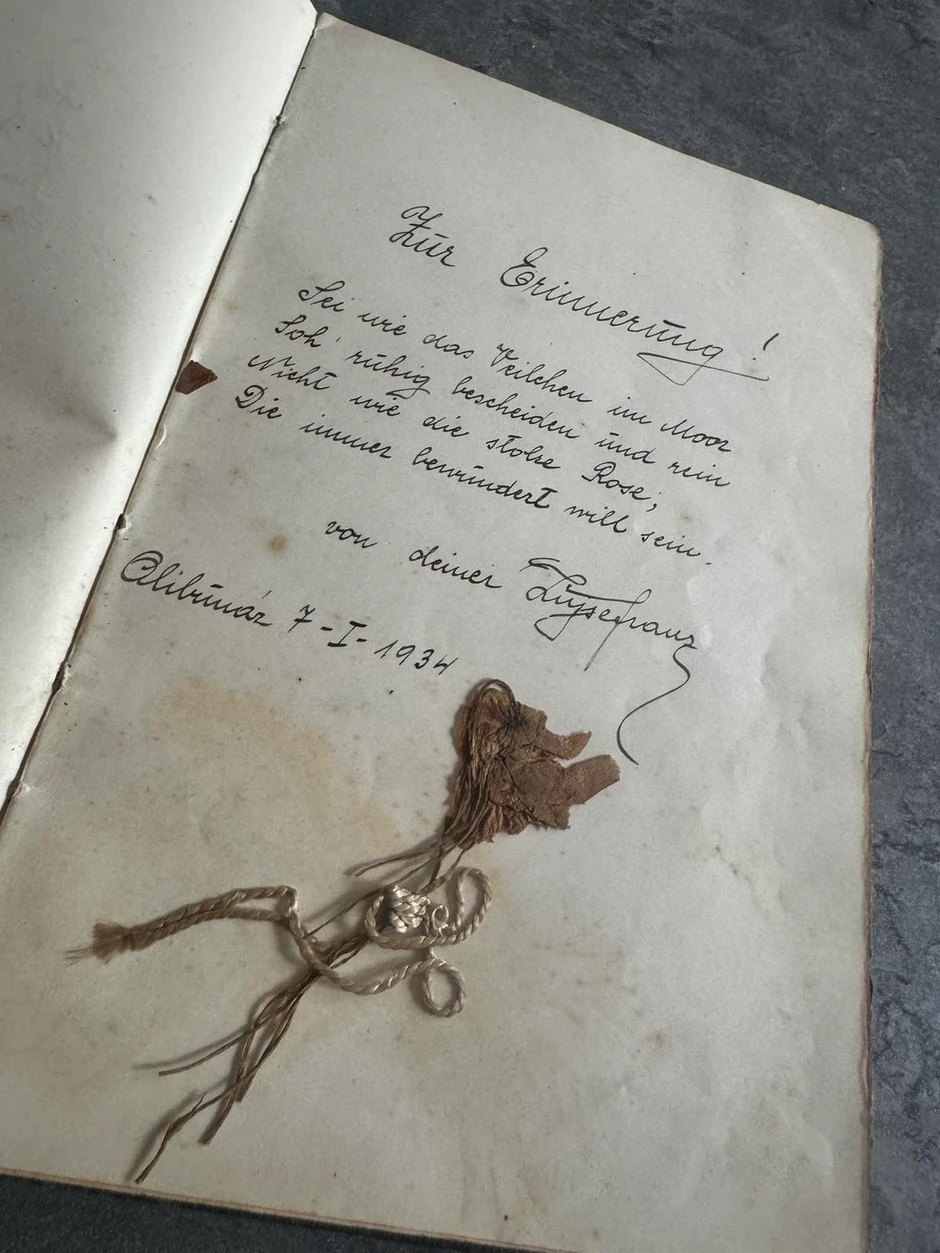 Zur Erinnerung!
Sei wie das Veilchen im Moos
Soh ruhig bescheiden und rein
Nicht wie die stolze Rose;
Die immer bewundert will sein.
von deiner
Alibunár 7-I-1934